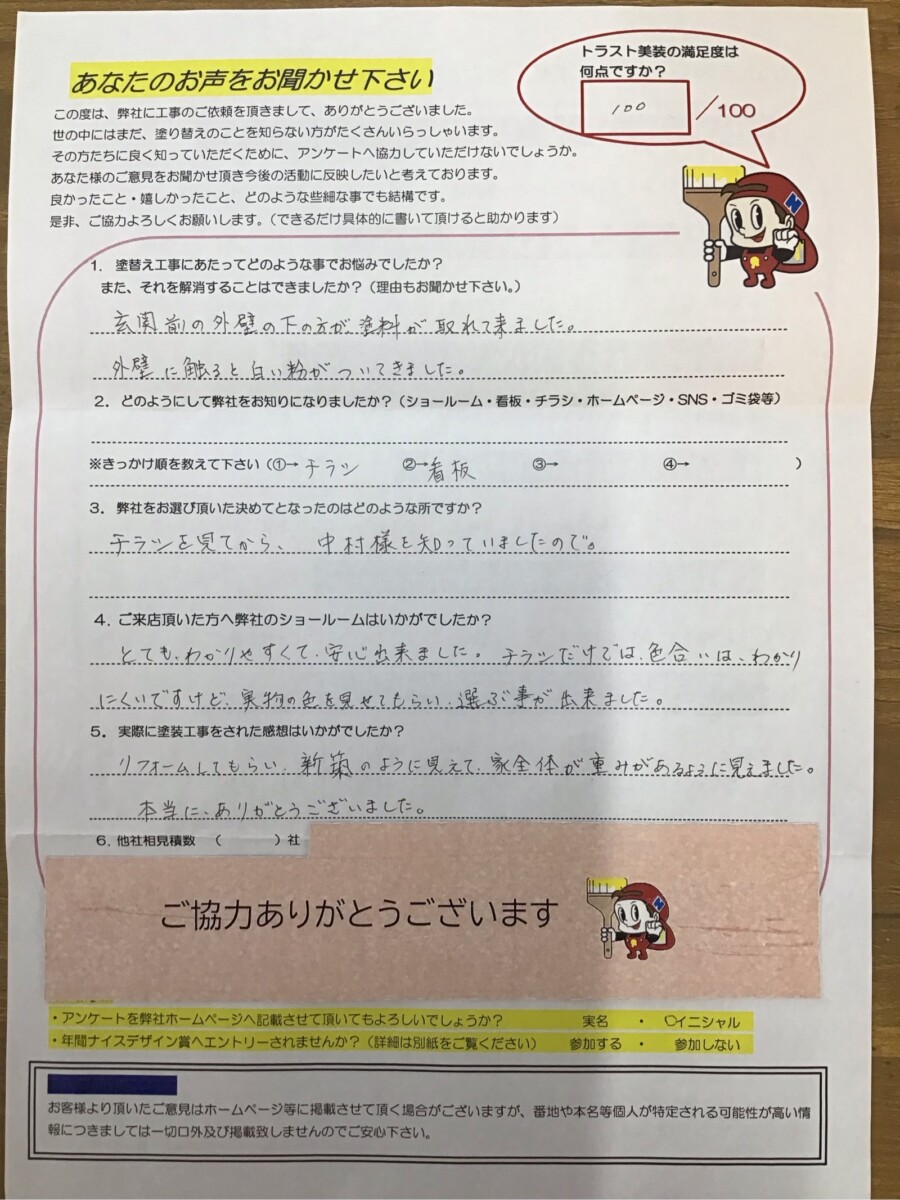 あなたのお声をお聞かせ下さい
トラスト美装の満足度は
何点ですか？
100
／100
この度は、弊社に工事のご依頼を頂きまして、ありがとうございました。
世の中にはまだ、塗り替えのことを知らない方がたくさんいらっしゃいます。
その方たちに良く知っていただくために、アンケートへ協力していただけないでしょうか。
あなた様のご意見をお聞かせ頂き今後の活動に反映したいと考えております。
良かったこと・嬉しかったこと、どのような些細な事でも結構です。
是非、ご協力よろしくお願いします。（できるだけ具体的に書いて頂けると助かります）
N
1．塗替え工事にあたってどのような事でお悩みでしたか？
また、それを解消することはできましたか？（理由もお聞かせ下さい。）
玄関前の外壁の下の方が塗料が取れて来ました。
外壁に触ると白い粉がついてきました。
2．どのようにして弊社をお知りになりましたか？（ショールーム・看板・チラシ・ホームページ・SNS・ゴミ袋等）
※きっかけ順を教えて下さい（①→ チラシ ②→ 看板 ③→ ④→ ）
3．弊社をお選び頂いた決めてとなったのはどのような所ですか？
チラシを見てから、中村様を知っていましたので。
4．ご来店頂いた方へ弊社のショールームはいかがでしたか？
とても、わかりやすくて、安心出来ました。チラシだけでは、色合いは、わかり
にくいですけど、実物の色を見せてもらい、選ぶ事が出来ました。
5．実際に塗装工事をされた感想はいかがでしたか？
リフォームしてもらい、新築のように見えて、家全体が重みがあるように見えました。
本当に、ありがとうございました。
6．他社相見積数 （ ）社
ご協力ありがとうございます
N
・アンケートを弊社ホームページへ記載させて頂いてもよろしいでしょうか？ 実名 ・ イニシャル
・年間ナイスデザイン賞へエントリーされませんか？（詳細は別紙をご覧ください） 参加する ・ 参加しない
お客様より頂いたご意見はホームページ等に掲載させて頂く場合がございますが、番地や本名等個人が特定される可能性が高い情
報につきましては一切口外及び掲載致しませんのでご安心下さい。